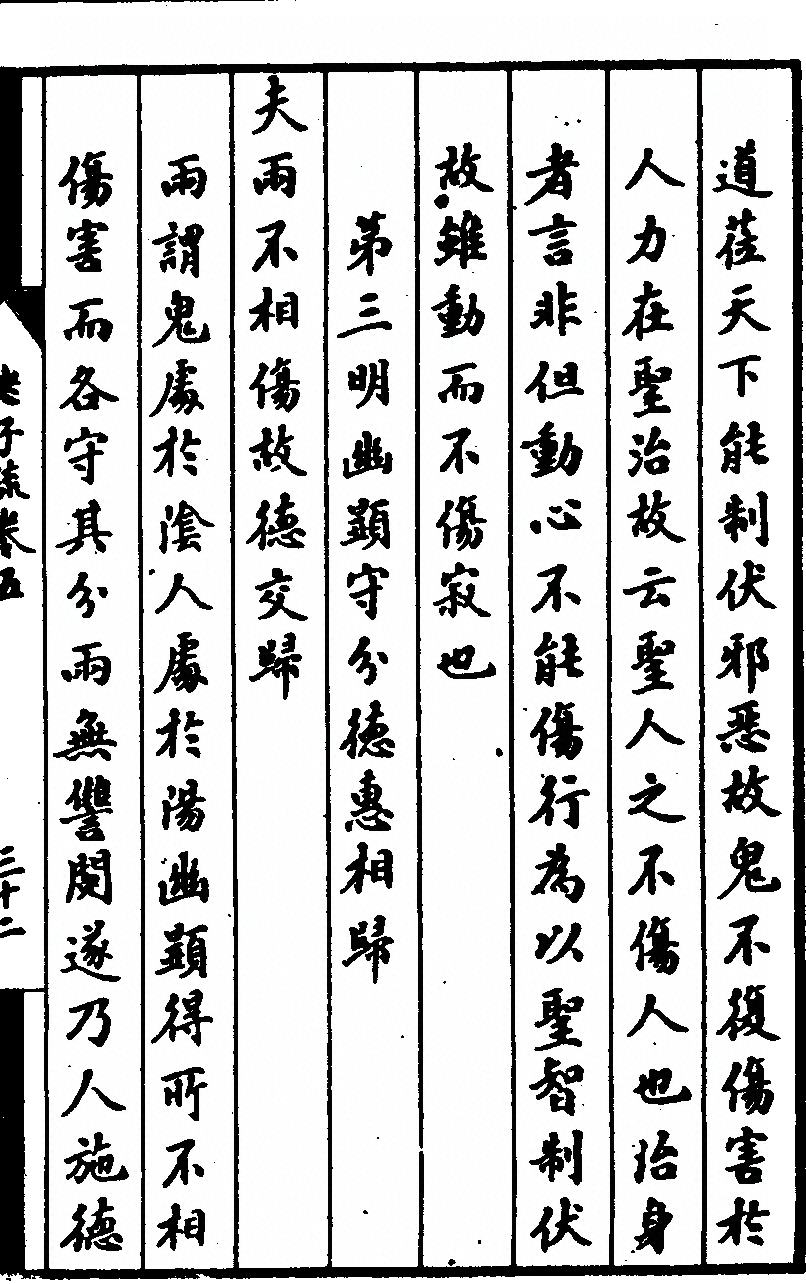 道莅天下能制伏邪惡故鬼不復傷害於
人力在聖治故云聖人之不傷人也治身
者言非但動心不能傷行為以聖智制伏
故雖動而不傷寂也
第三明幽顯守分德惠相歸
夫兩不相傷故德交歸
兩謂鬼處於陰人處於陽幽顯得所不相
傷害而各守其分兩無讐閱遂乃人施德
老子疏卷五
三十二